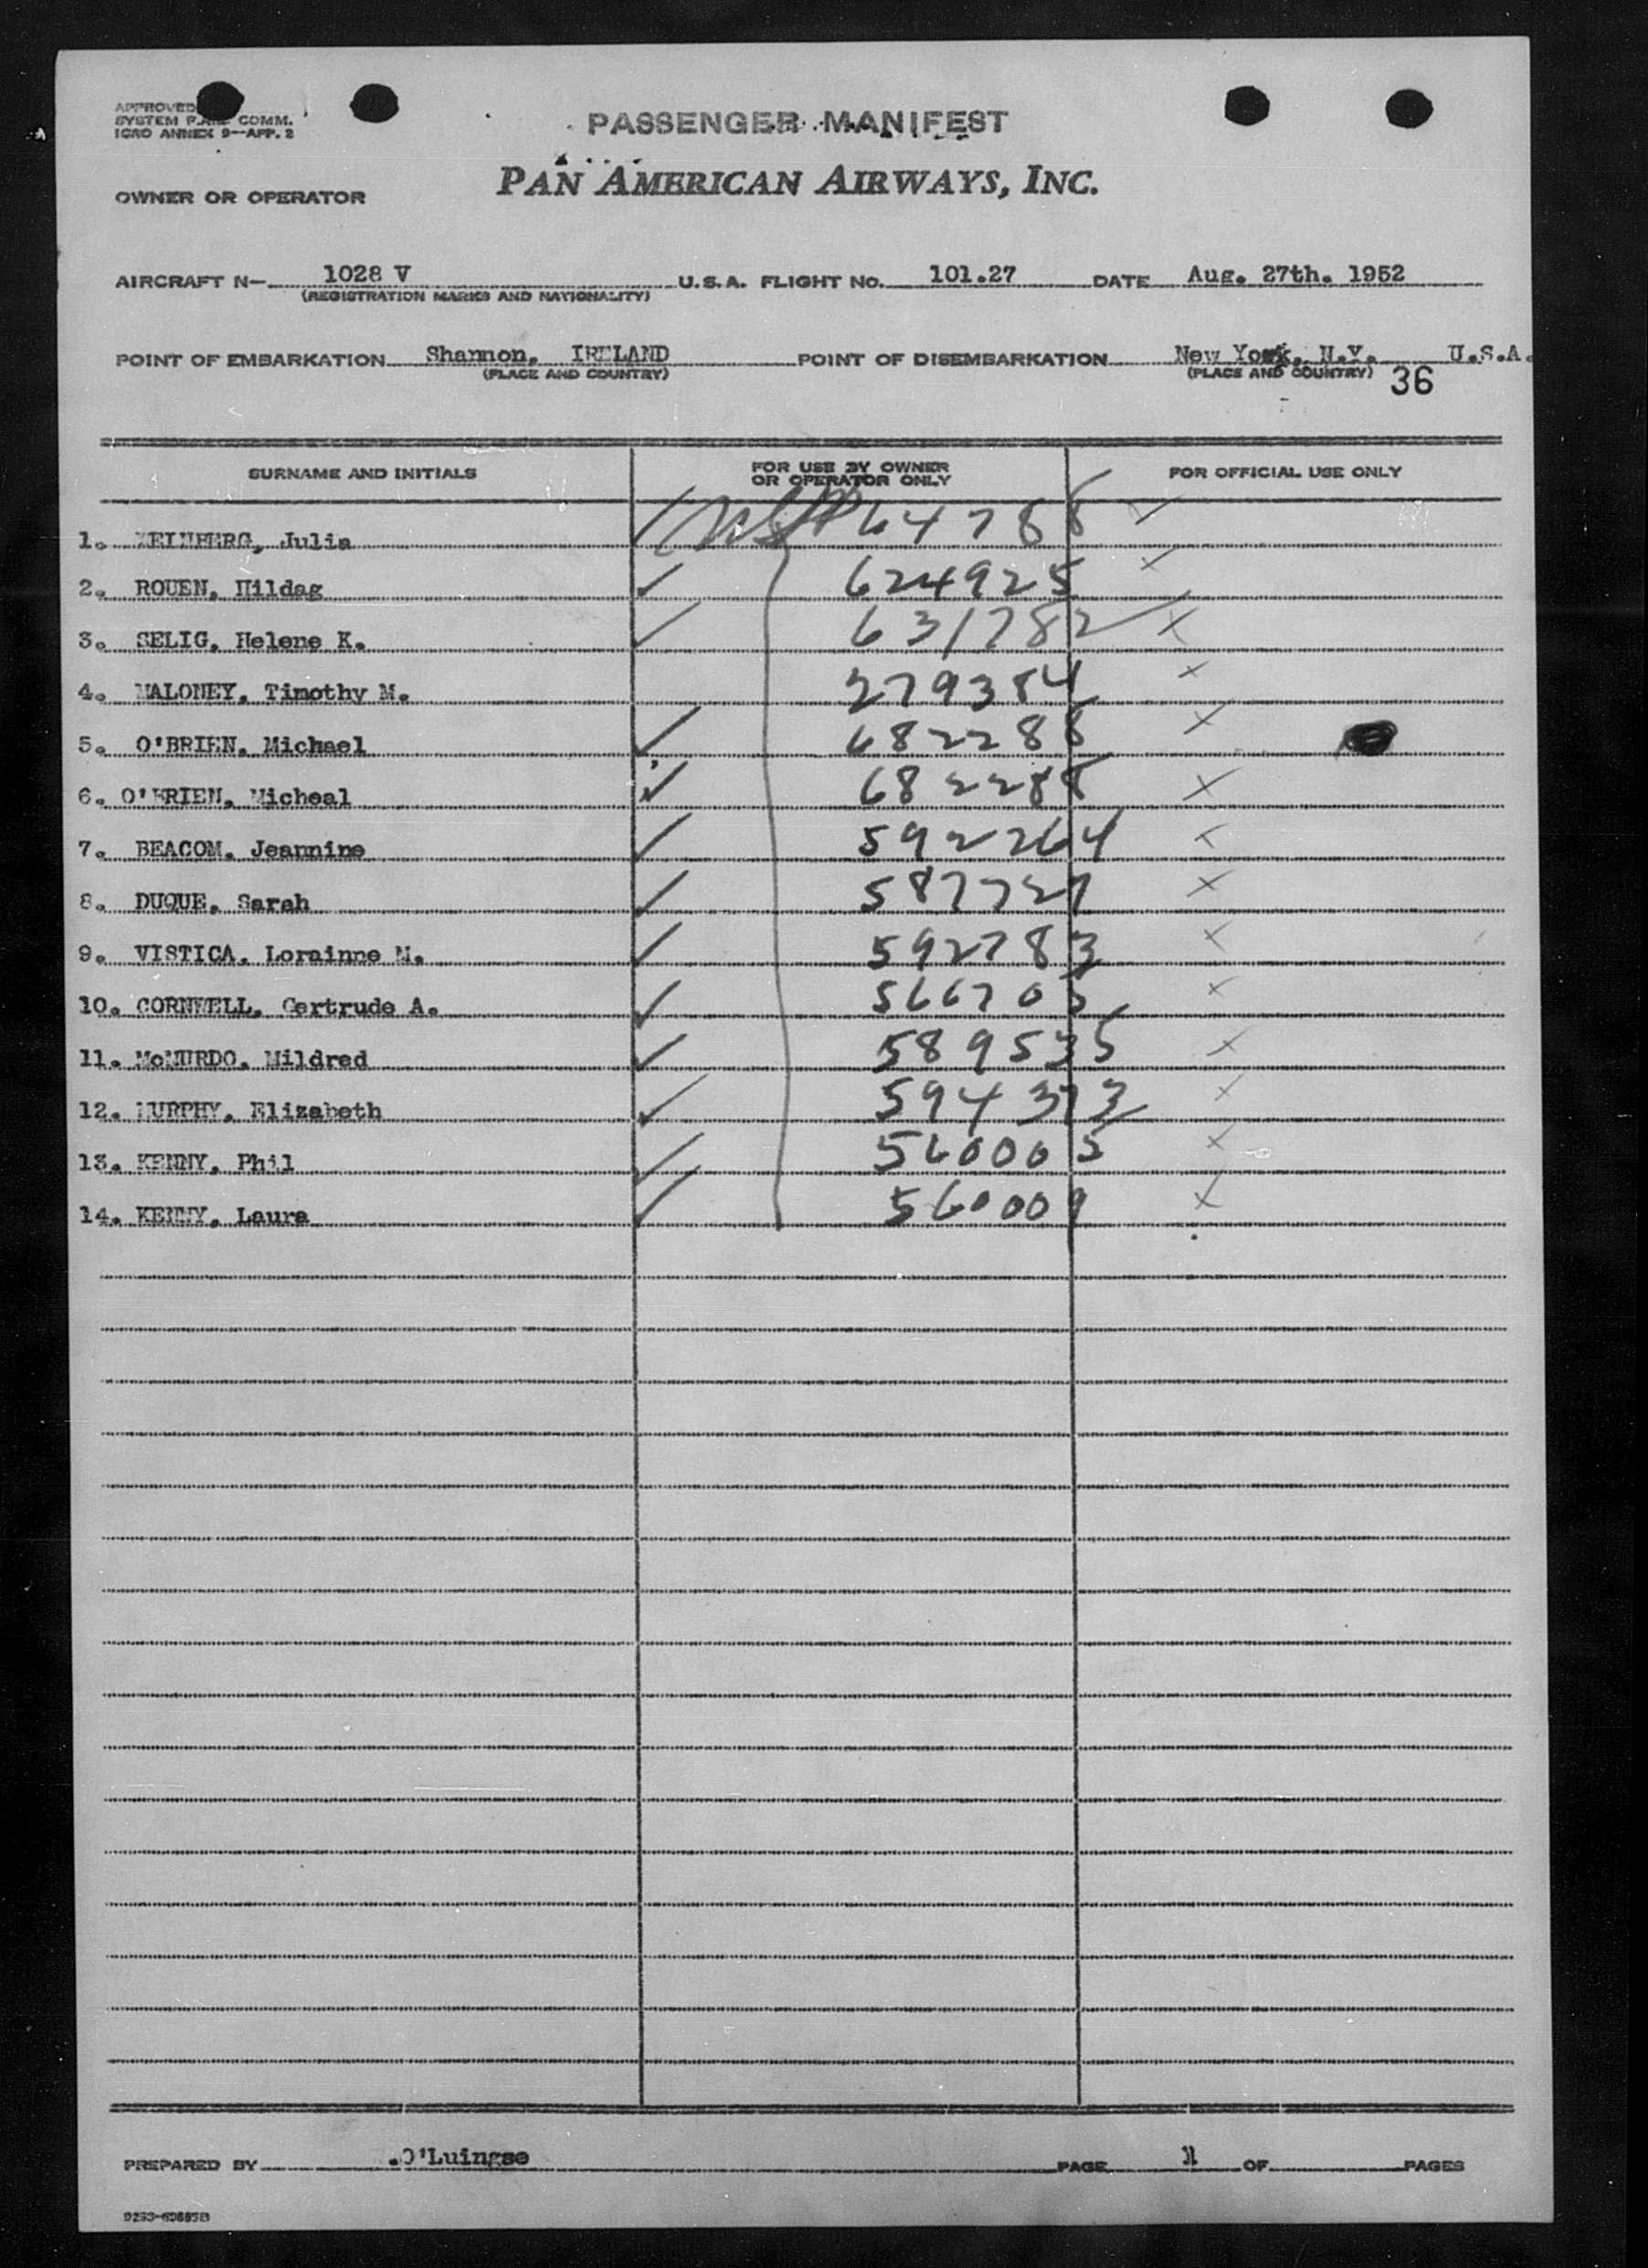 APPROVED
SYSTEM P.A.A. COMM.
ICAO ANNEX 9—APP. 2
PASSENGER MANIFEST
OWNER OR OPERATOR
PAN AMERICAN AIRWAYS, INC.
AIRCRAFT N— 1028 V U.S.A. FLIGHT NO. 101.27 DATE Aug. 27th. 1952
(REGISTRATION MARKS AND NATIONALITY)
POINT OF EMBARKATION Shannon, IRELAND POINT OF DISEMBARKATION New York, N.Y. U.S.A.
(PLACE AND COUNTRY) (PLACE AND COUNTRY) 36
SURNAME AND INITIALS FOR USE BY OWNER OR OPERATOR ONLY FOR OFFICIAL USE ONLY
1. Julia 64788
2. ROUEN, Hildag 624925
3. SELIG, Helene K. 631782
4. MALONEY, Timothy M. 279384
5. O'BRIEN, Michael 682288
6. O'BRIEN, Micheal 682288
7. BEACOM, Jeannine 592264
8. DUQUE, Sarah 587727
9. VISTICA, Lorainne M. 592783
10. CORNWELL, Gertrude A. 566705
11. McMURDO, Mildred 589535
12. MURPHY, Elizabeth 594373
13. KENNY, Phil 560005
14. KENNY, Laura 560009
PREPARED BY O'Luingse PAGE 1 OF PAGES